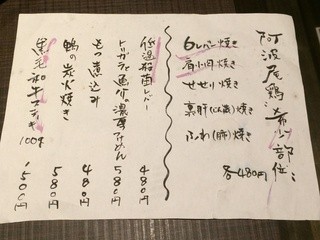 阿波尾鶏 希少部位
白レバー焼き
肩小肉焼き
せせり焼き
裏肝(心臓)焼き
ふわ(肺)焼き
各480円
低温殺菌レバー 480円
トリガラ魚介の濃厚つけめん 580円
もつ煮込み 480円
鴨の炭火焼き 580円
黒毛和牛ステーキ 100g 1500円